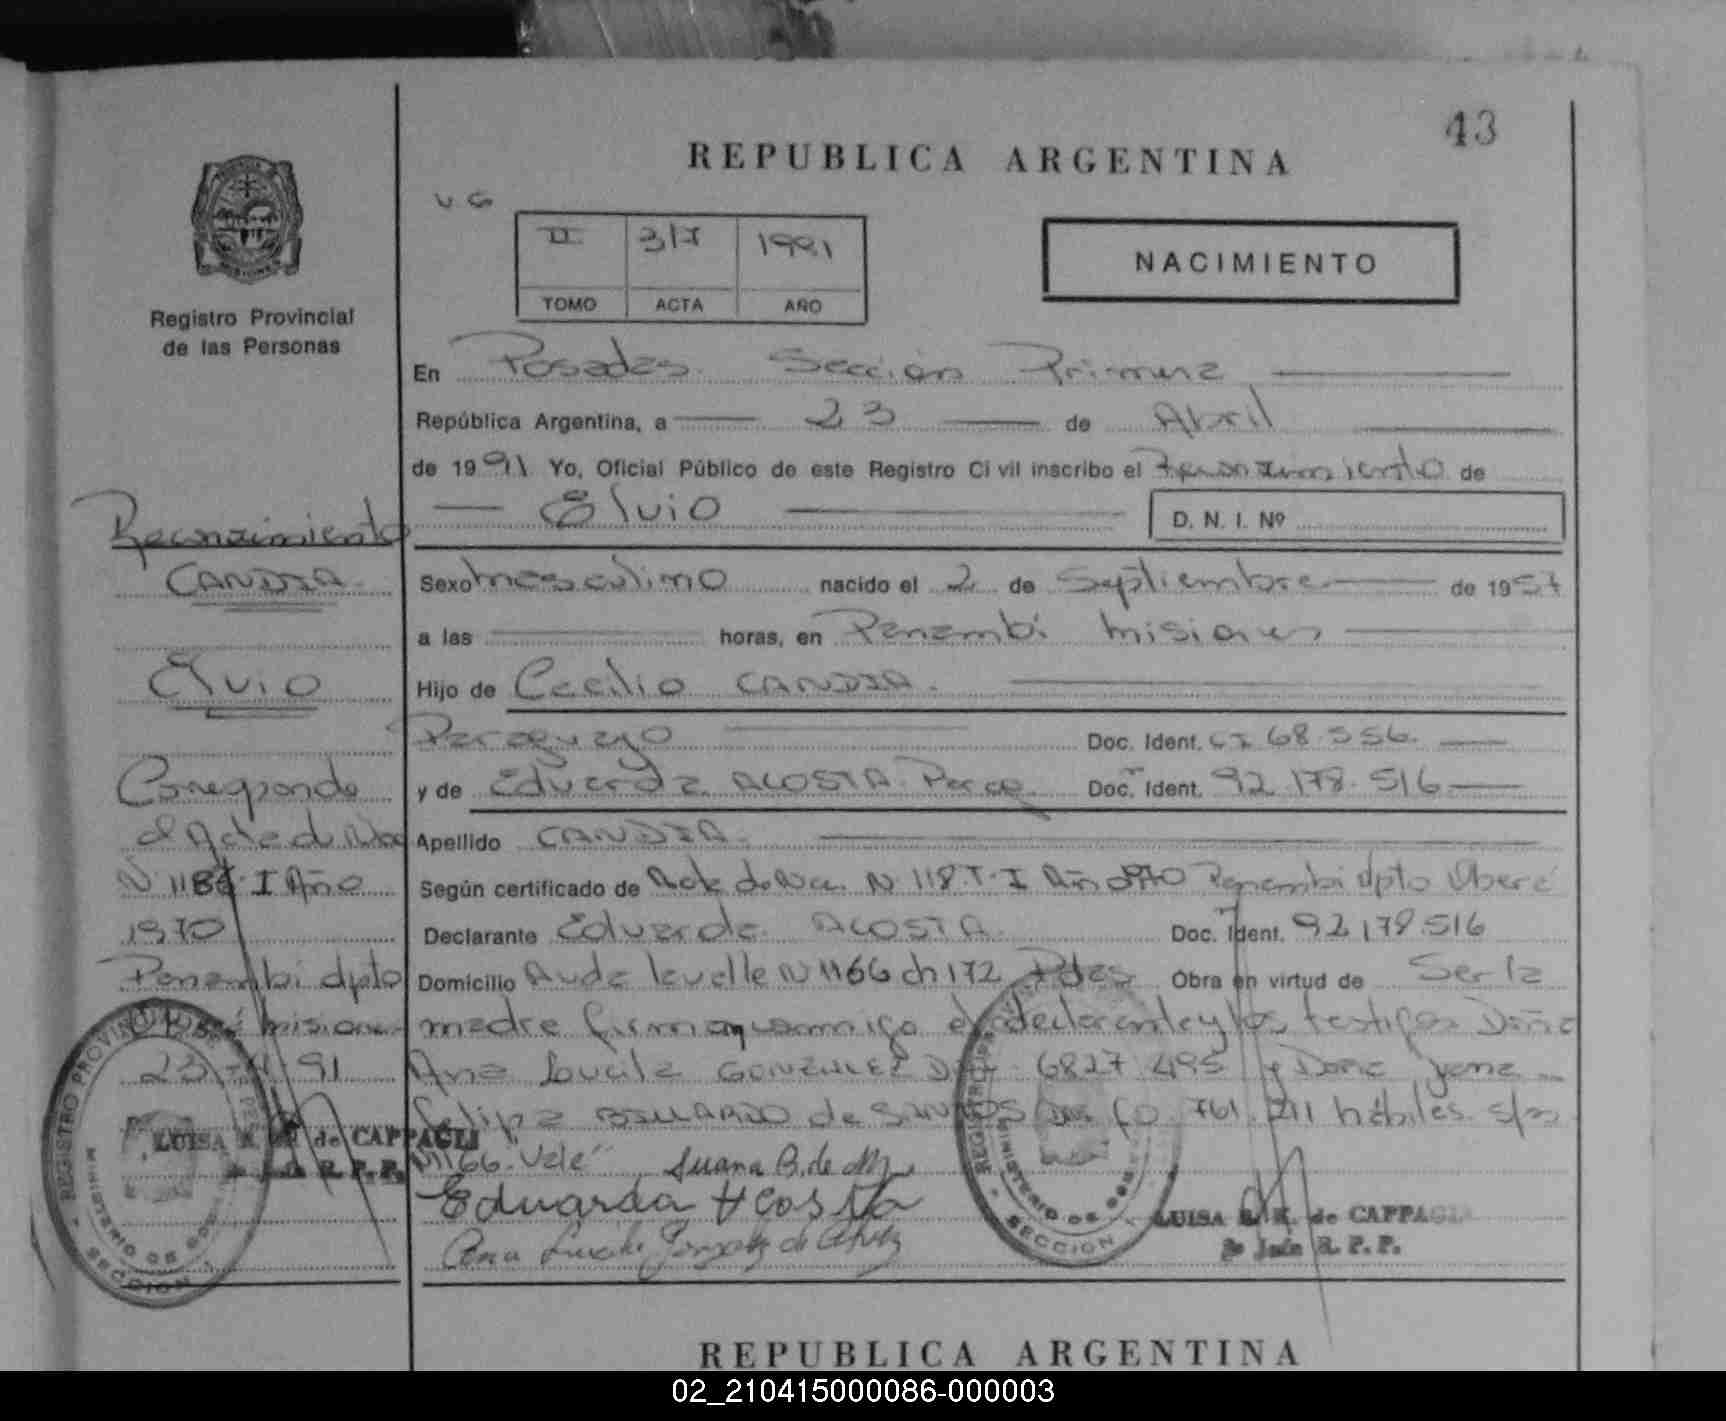 43
REPUBLICA ARGENTINA
Registro Provincial
de las Personas
II 317 1991
TOMO ACTA AÑO
NACIMIENTO
En Posadas. Sección Primera
República Argentina, a 23 de Abril
de 1991 Yo, Oficial Público de este Registro Civil inscribo el Reconocimiento de
Elvio D. N. I. Nº
Sexo Masculino nacido el 2 de Septiembre de 1957
a las horas, en Panambi Misiones
Hijo de Cecilio CANDIA.
Paraguayo Doc. Ident. CI 68.556.
y de Eduarda ACOSTA. Doc. Ident. 92.178.516
Apellido CANDIA.
Según certificado de Acta de Nac. N 118. T. I Año 970 Panambi dpto Oberá
Declarante Eduarda ACOSTA Doc. Ident. 92.178.516
Domicilio Avda lavalle N 1166 ch 172 Pdas Obra en virtud de Ser la
madre firman conmigo el declarante y los testigos Doña
Ana Lucila GONZALEZ 6827.495 y Doña Juana
Felipa de SANTOS 761.211 hábiles s/m
N 1166. Vale Juana B. de M
Eduarda Acosta
Ana Lucila Gonzalez de
Reconocimiento
CANDIA.
Elvio
Corresponde
el Acta de Nac
N 118 I Año
1970
Panambi dpto
Oberá Misiones
23 4 91
REGISTRO PROVINCIAL DE LAS PERSONAS
MINISTERIO DE GOBIERNO
SECCION
LUISA de CAPPAGLI
R. P. P.
REGISTRO PROVINCIAL DE LAS PERSONAS
MINISTERIO DE GOBIERNO
SECCION
LUISA R. K. de CAPPAGLI
R. P. P.
REPUBLICA ARGENTINA
02_210415000086-000003